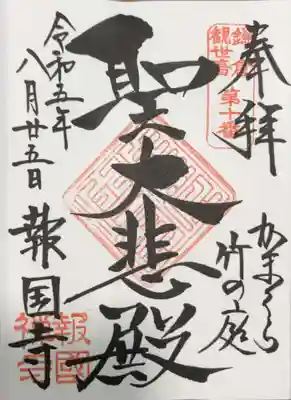 奉拝
鎌倉
観世音
第十番
かまくら
竹の庭
聖大悲殿
令和五年
八月廿五日
報国寺
報國
禅寺